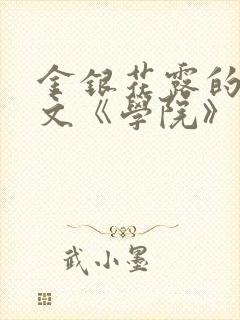 金銀花露的
文《學院》
武小墨